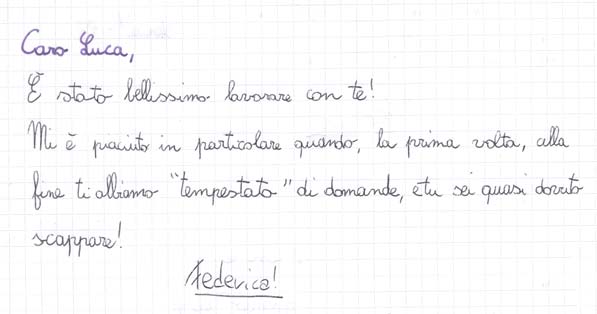 Caro Luca,
È stato bellissimo lavorare con te!
Mi è piaciuto in particolare quando, la prima volta, alla
fine ti abbiamo "tempestato" di domande, e tu sei quasi dovuto
scappare!
Federica!